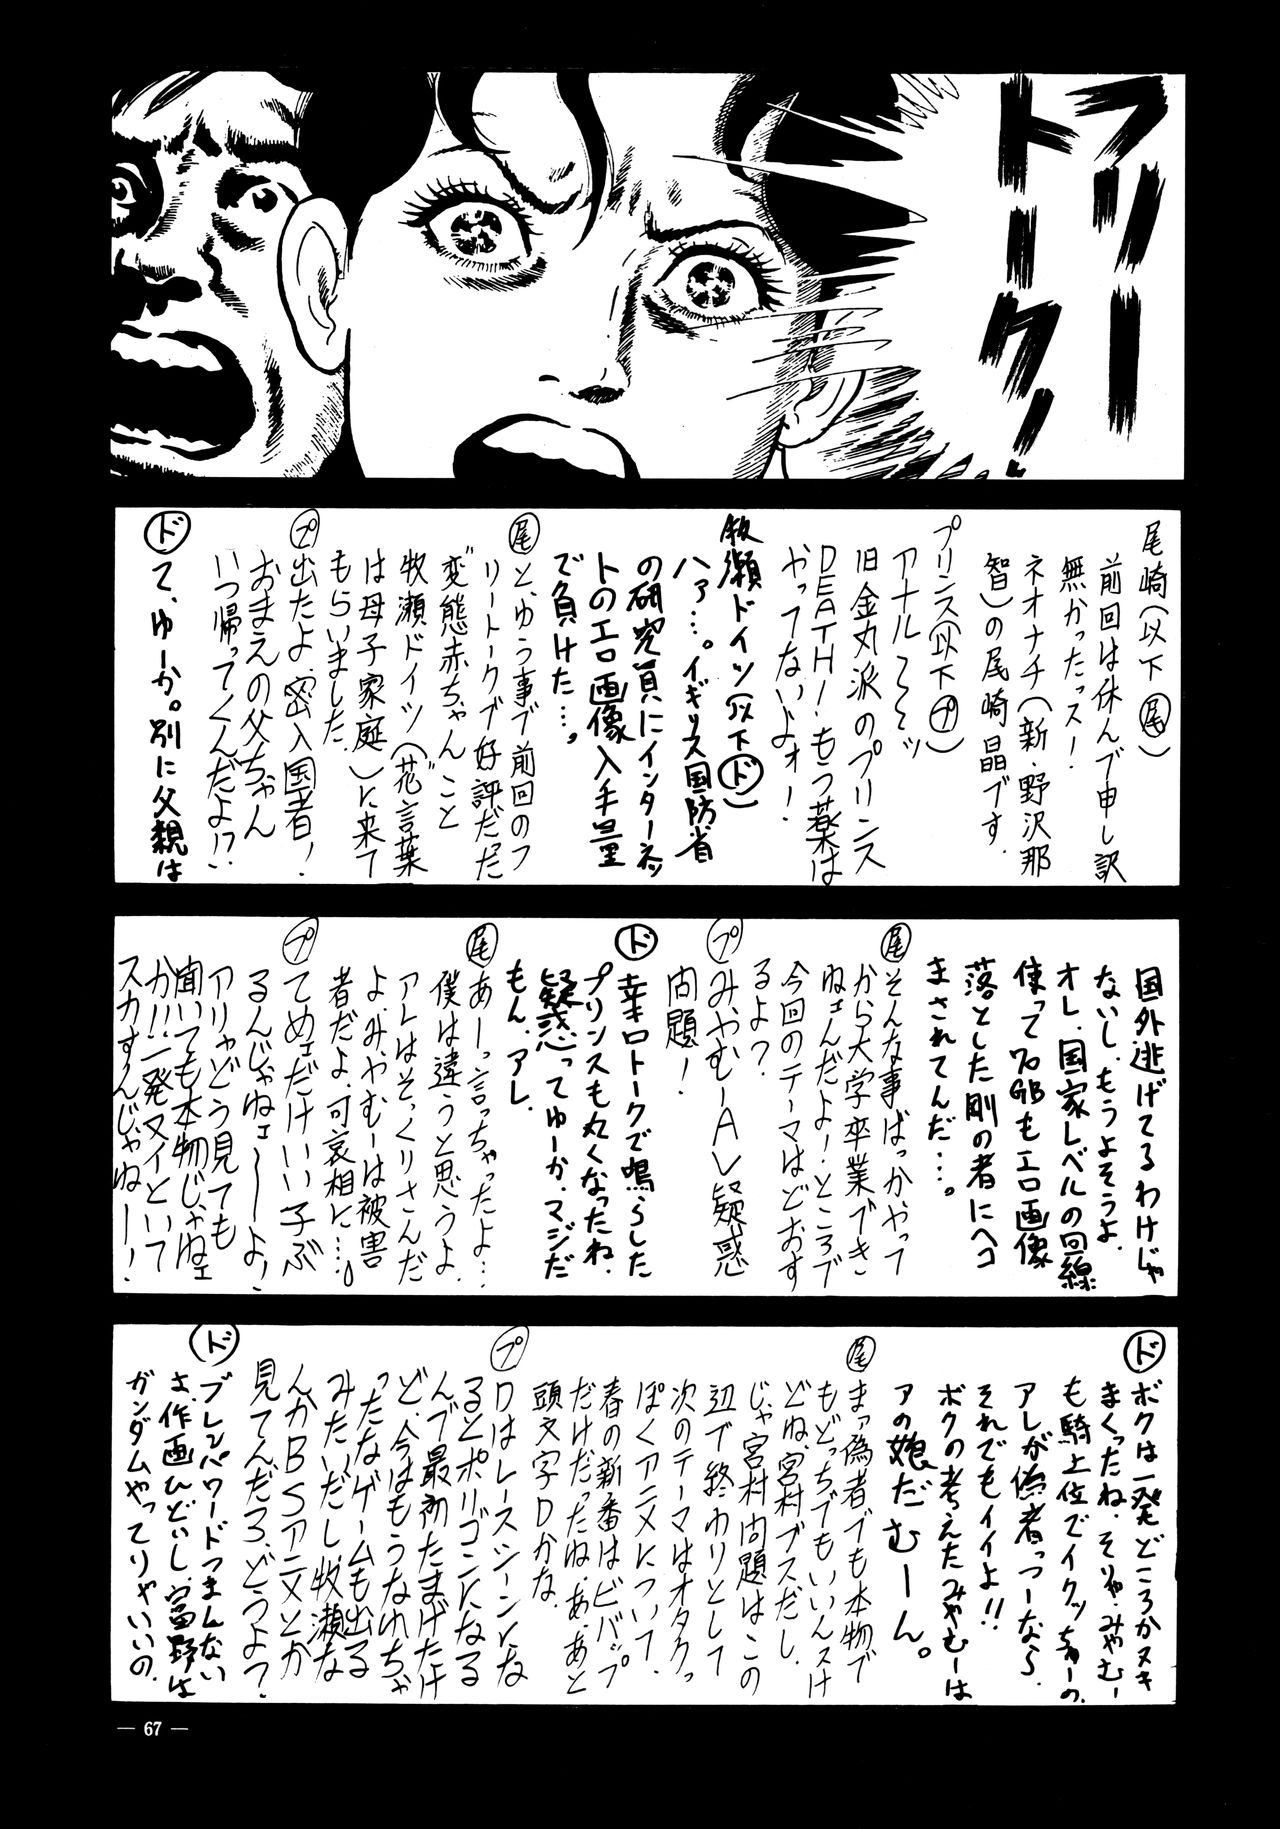 フリー
トーク!
尾崎(以下尾)
前回は休んで申し訳
無かったっス!
ネオナチ(新・野沢那
智)の尾崎晶です.
プリンス(以下プ)
アナル〜〜ッ
旧金丸派のプリンス
DEATH!もう薬は
やってないよォ!
牧瀬ドイツ(以下ド)
ハァ…。イギリス国防省
の研究員にインターネッ
トのエロ画像入手量
で負けた…。
尾と、ゆう事で前回のフ
リートークで好評だった
変態赤ちゃんこと
牧瀬ドイツ(花言葉
は母子家庭)に来て
もらいました.
プ出たよ、密入国者!
おまえの父ちゃん
いつ帰ってくんだよ!?
ドて、ゆーか。別に父親は
国外逃げてるわけじゃ
ないし.もうよそうよ.
オレ、国家レベルの回線
使って70GBもエロ画像
落とした剛の者にヘコ
まされてんだ…。
尾そんな事ばっかやって
から大学卒業でき
ねェんだよ!ところで
今回のテーマはどおす
るよ?
プみやむーAV疑惑
問題!
ド辛口トークで鳴らした
プリンスも丸くなったね.
疑惑ってゆーか.マジだ
もん.アレ.
尾あーっ言っちゃったよ…
僕は違うと思うよ.
アレはそっくりさんだ
よ.みやむーは被害
者だよ.可哀相に…。
プてめェだけいい子ぶ
るんじゃねェーーよ!
アリャどう見ても
聞いても本物じゃねェ
か!!一発ヌイといて
スカすんじゃねー!
ドボクは一発どころかヌキ
まくったね.そりゃ.みやむー
も騎上位でイクッちゅーの.
アレが偽者っつーなら
それでもイイよ!!
ボクの考えたみやむーは
アの娘だむーん。
尾まァ偽者でも本物で
もどっちでもいいんスけ
どね.宮村ブスだし.
じゃ宮村問題はこの
辺で終わりとして
次のテーマはオタクっ
ぽくアニメについて.
春の新番はビバップ
だけだったね.あ、あと
頭文字Dかな.
プDはレースシーンにな
るとポリゴンになる
んで最初たまげたけ
ど、今はもうなれちゃ
ったなゲームも出る
みたいだし.牧瀬な
んかBSアニメとか
見てんだろ.どうよ?
ドブレンパワードつまんない
さ.作画ひどいし.富野は
ガンダムやってりゃいいの.
— 67 —